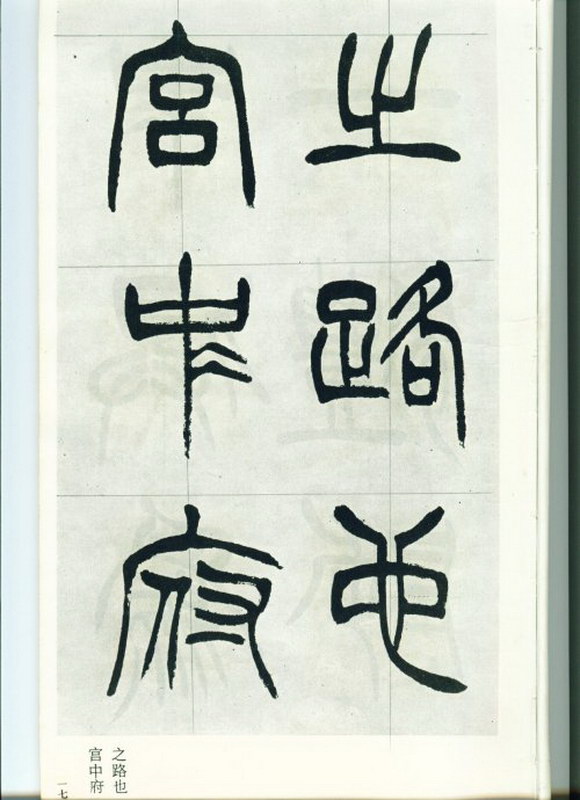 之路也
宫中府
之路也
宫中府
一七